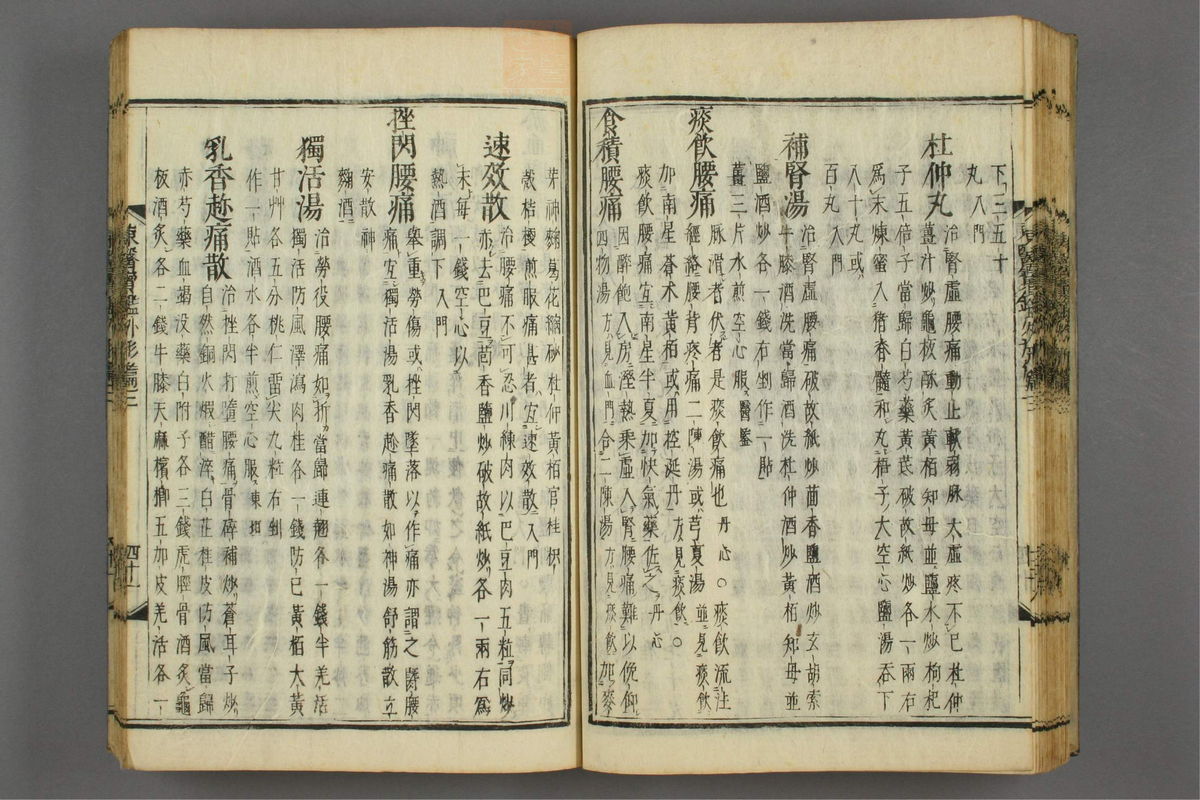 下三五十
丸入門
杜仲丸 治腎虛腰痛動止軟弱脉大虛疼不已杜仲
薑汁炒龜板酥炙黃栢知母並鹽水炒枸杞
子五倍子當歸白芍藥黃芪破故紙炒各一兩右
爲末煉蜜入猪脊髓和丸梧子大空心鹽湯吞下
八十丸或
百丸入門
補腎湯 治腎虛腰痛破故紙炒茴香鹽酒炒玄胡索
牛膝酒洗當歸酒洗杜仲酒炒黃栢知母並
鹽酒炒各一錢右剉作一貼
薑三片水煎空心服醫鑒
痰飮腰痛 脉滑者伏者是痰飮痛也丹心○痰飮流注
經絡腰背疼痛二陳湯或芎夏湯並見痰飮
加南星蒼朮黃栢或用控涎丹方見痰飮○
痰飮腰痛宜南星半夏加快氣藥佐之丹心
食積腰痛 因醉飽入房濕熱乘虛入腎腰痛難以俛仰
四物湯方見血門合二陳湯方見痰飮加麥
芽神麴葛花縮砂杜仲黃栢官桂枳
殼桔梗煎服痛甚者宜速效散入門
速效散 治腰痛不可忍川練肉以巴豆肉五粒同炒
赤去巴豆茴香鹽炒破故紙炒各一兩右爲
末每一錢空心以
熱酒調下入門
挫閃腰痛 擧重勞傷或挫閃墜落以作痛亦謂之䐴腰
痛宜獨活湯乳香趂痛散如神湯舒筋散立
安散神
麴酒
獨活湯 治勞役腰痛如折當歸連翹各一錢半羌活
獨活防風澤瀉肉桂各一錢防已黃栢大黃
甘艸各五分桃仁雷尖九粒右剉
作一貼酒水各半煎空心服東垣
乳香趂痛散 治挫閃打墮腰痛骨碎補炒蒼耳子炒
自然銅火煆醋淬白芷桂皮防風當歸
赤芍藥血竭沒藥白附子各三錢虎脛骨酒炙龜
板酒炙各二錢牛膝天麻檳榔五加皮羌活各一
東醫寶鑑外形篇三
四十一